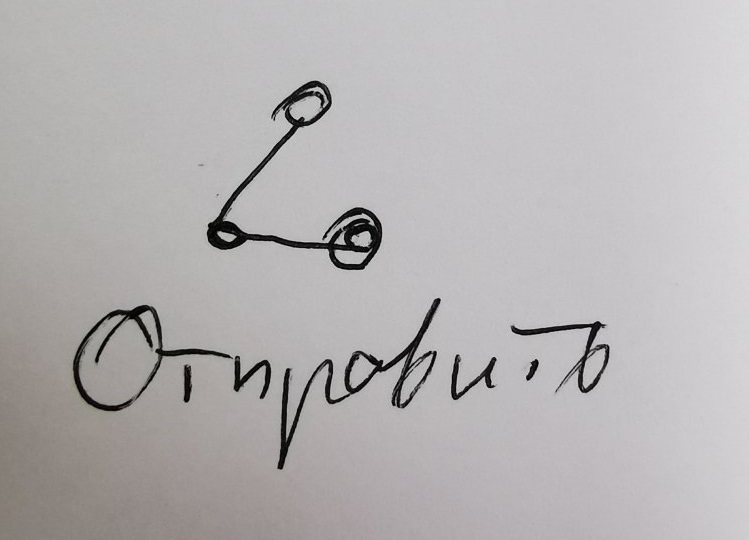 Отправить